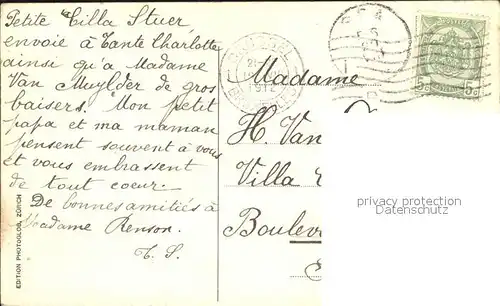 Petite Cilla Stuer
envoie à Tante Charlotte
ainsi qu'a Madame
Van Muylder de gros
baisers. Mon petit
papa et ma maman
pensent souvent à vous
et vous embrassent
de tout coeur.
De bonnes amitiés à
Madame Renson.
C. S.
Madame
H. Van
Villa
Boulev
EDITION PHOTOGLOB, ZÜRICH
5c 5c
privacy protection
Datenschutz